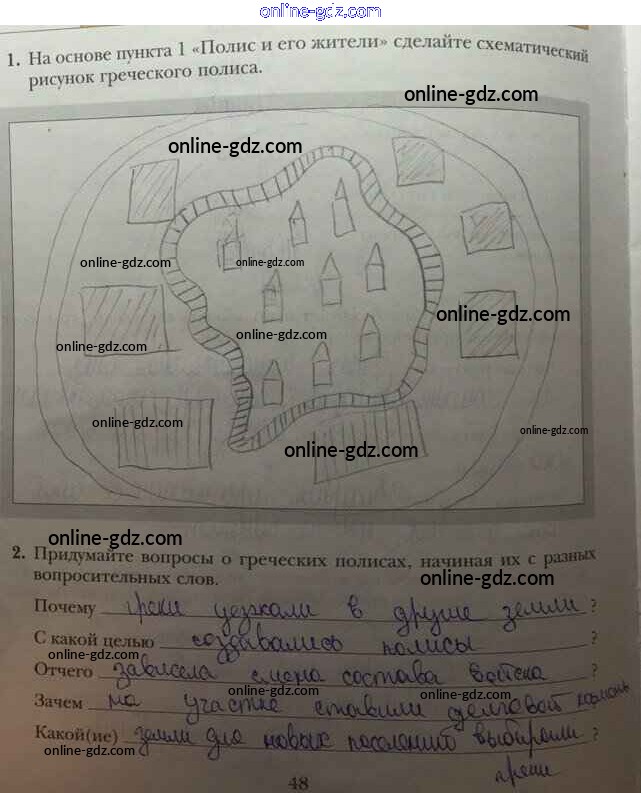 online-gdz.com
1. На основе пункта 1 «Полис и его жители» сделайте схематический
рисунок греческого полиса.
online-gdz.com
online-gdz.com
online-gdz.com
online-gdz.com
online-gdz.com
online-gdz.com
online-gdz.com
online-gdz.com
online-gdz.com
online-gdz.com
online-gdz.com
2. Придумайте вопросы о греческих полисах, начиная их с разных
вопросительных слов.
online-gdz.com
Почему греки уезжали в другие земли ?
С какой целью создавались полисы ?
online-gdz.com
Отчего зависела смена состава войска ?
online-gdz.com
online-gdz.com
Зачем на участке ставили долговой камень
Какой(ие) земли для новых поселений выбирали ?
греки
online-gdz.com
online-gdz.com
48